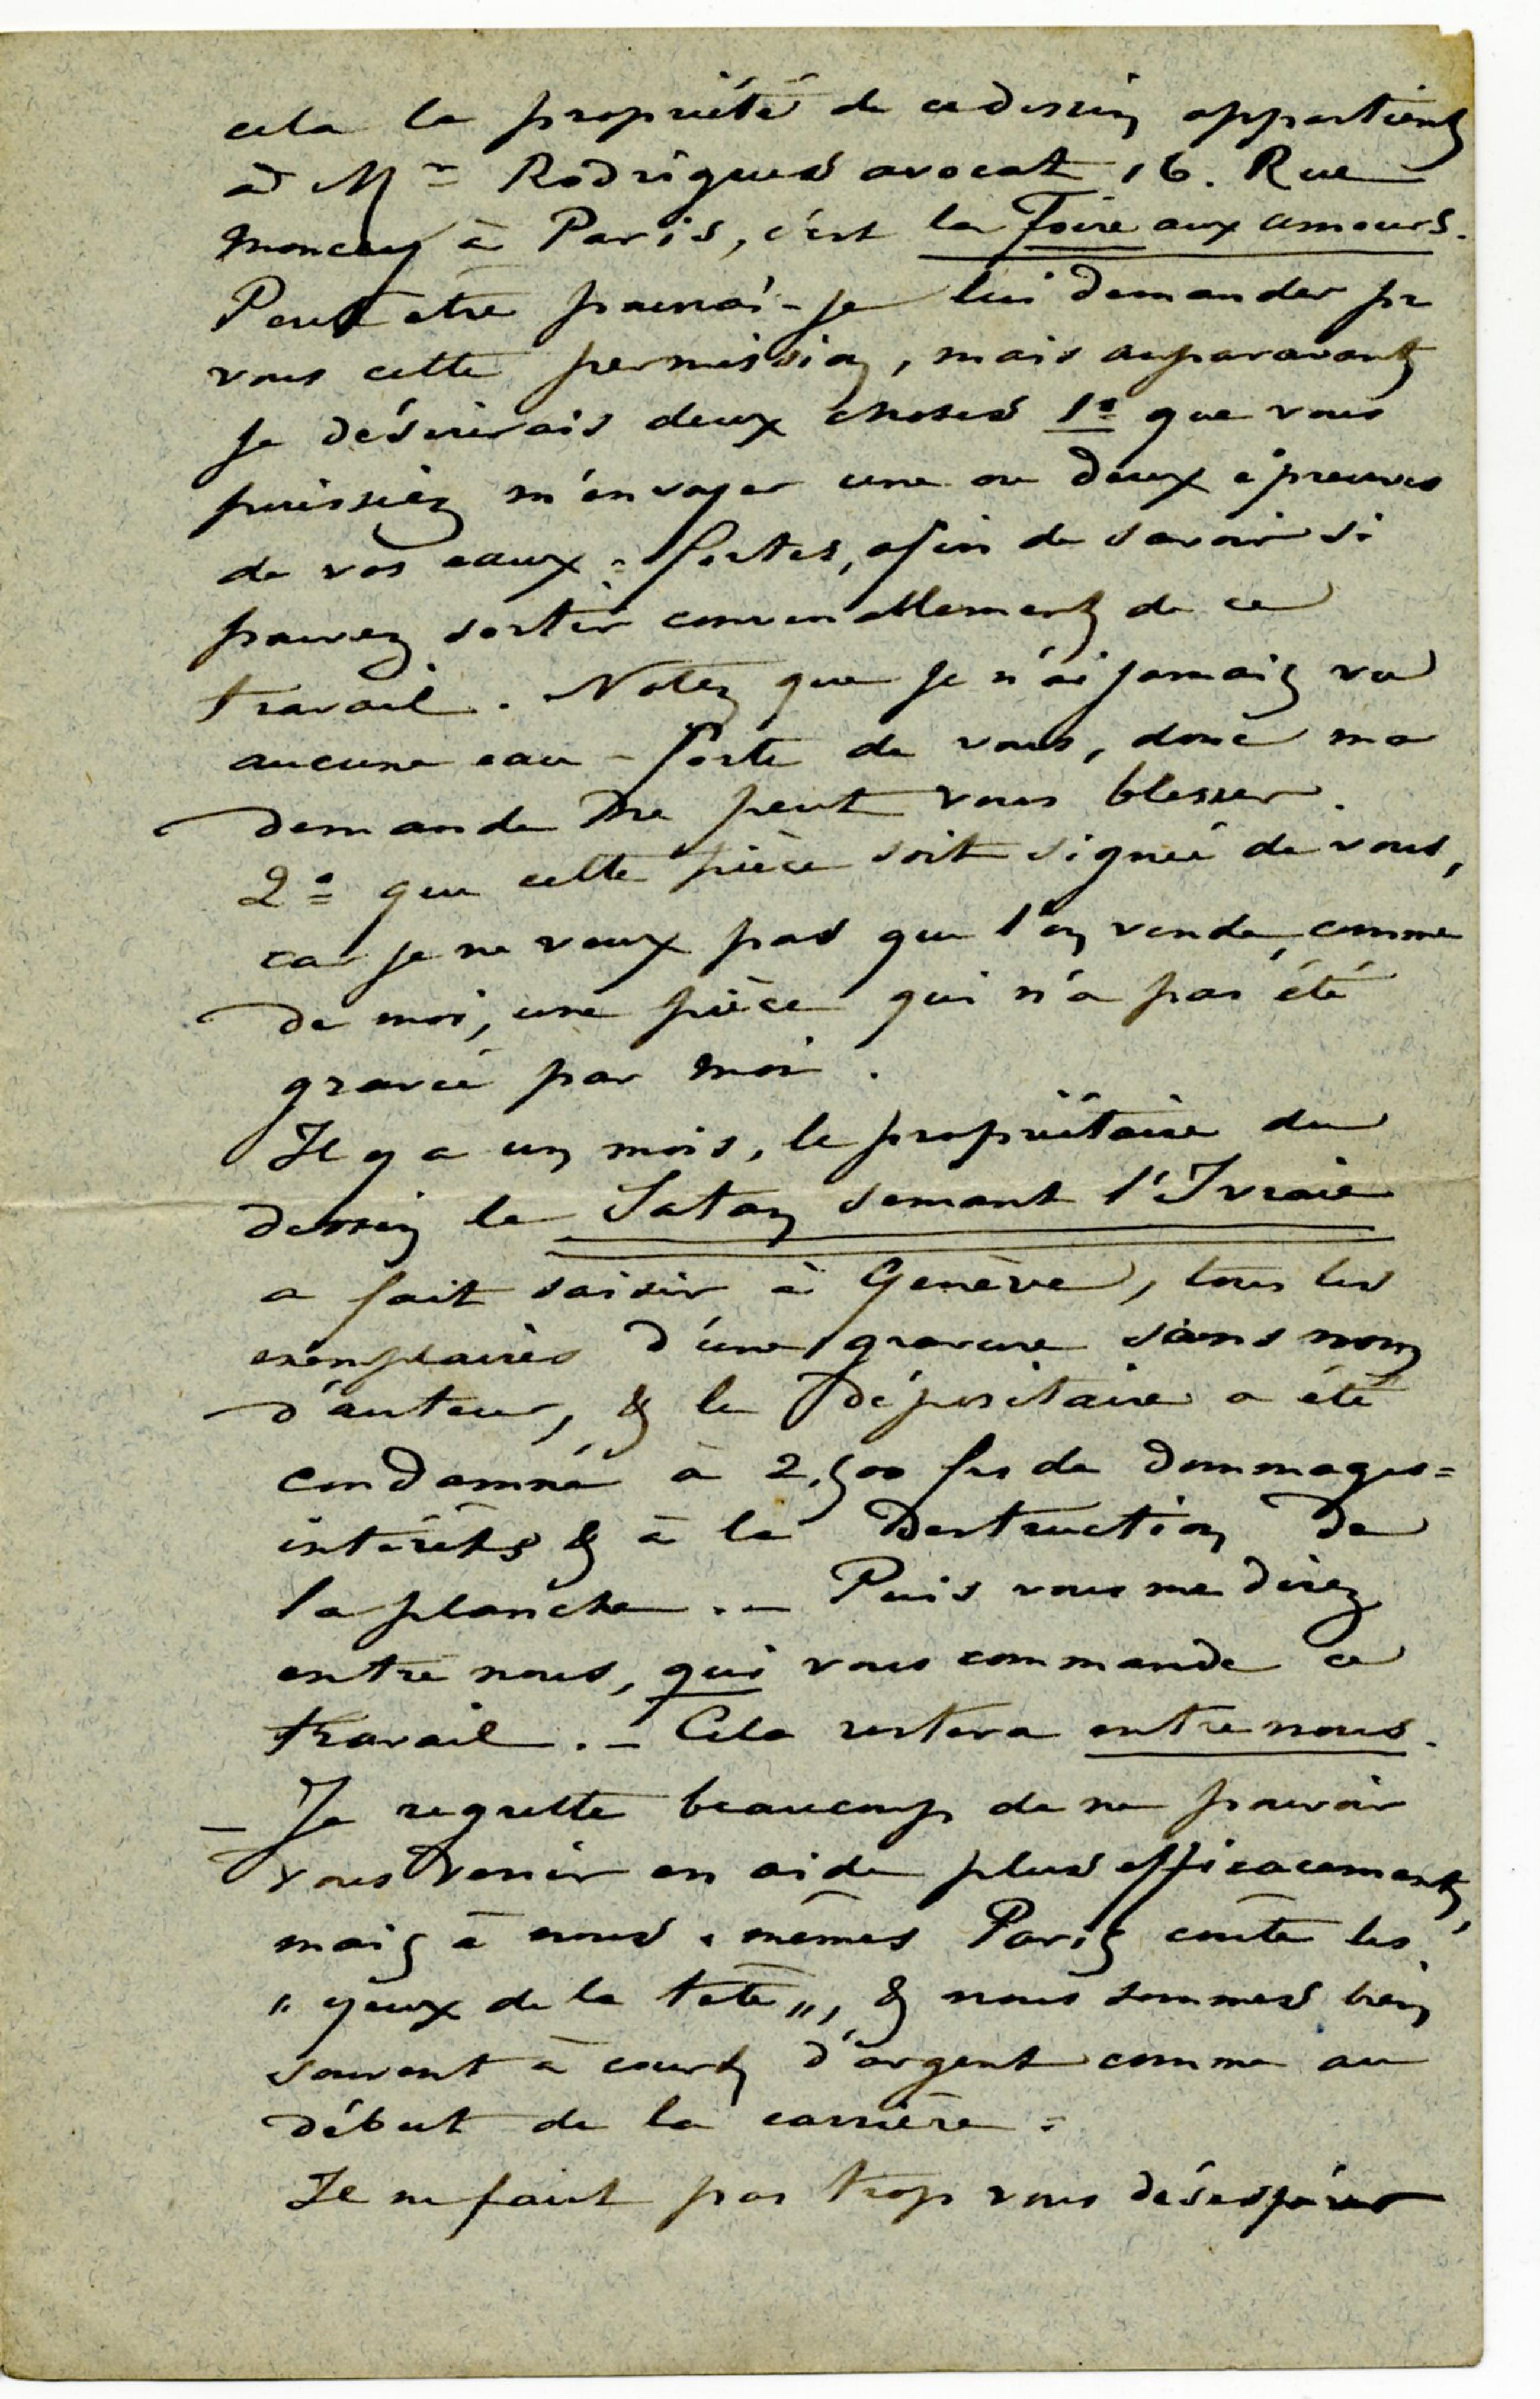 cela la propriété de ce dessin appartient
à Mr Rodrigues avocat 16. Rue
Moncey à Paris, c'est la Foire aux amours.
Peut être pourrai-je lui demander pr
vous cette permission, mais auparavant
je désirerais deux choses 1° que vous
puissiez m'envoyer une ou deux épreuves
de vos eaux=fortes, afin de savoir si
pouvez sortir convenablement de ce
travail. Notez que je n'ai jamais vu
aucune eau-forte de vous, donc ma
demande ne peut vous blesser.
2° que cette pièce soit signée de vous,
car je ne veux pas que l'on vende, comme
de moi, une pièce qui n'a pas été
gravée par moi.
Il y a un mois, le propriétaire du
dessin le Satan semant l'Ivraie
a fait saisir à Genève, tous les
exemplaires d'une gravure sans nom
d'auteur, & le dépositaire a été
condamné à 2.500 frs de dommages=
intérêts & à la Destruction de
la planche. — Puis vous me direz
entre nous, qui vous commande ce
travail. — Cela restera entre nous.
— Je regrette beaucoup de ne pouvoir
vous venir en aide plus efficacement,
mais à nous-mêmes Paris coûte les
"yeux de la tête", & nous sommes bien
souvent à court d'argent comme au
début de la carrière.
Il ne faut pas trop vous désespérer